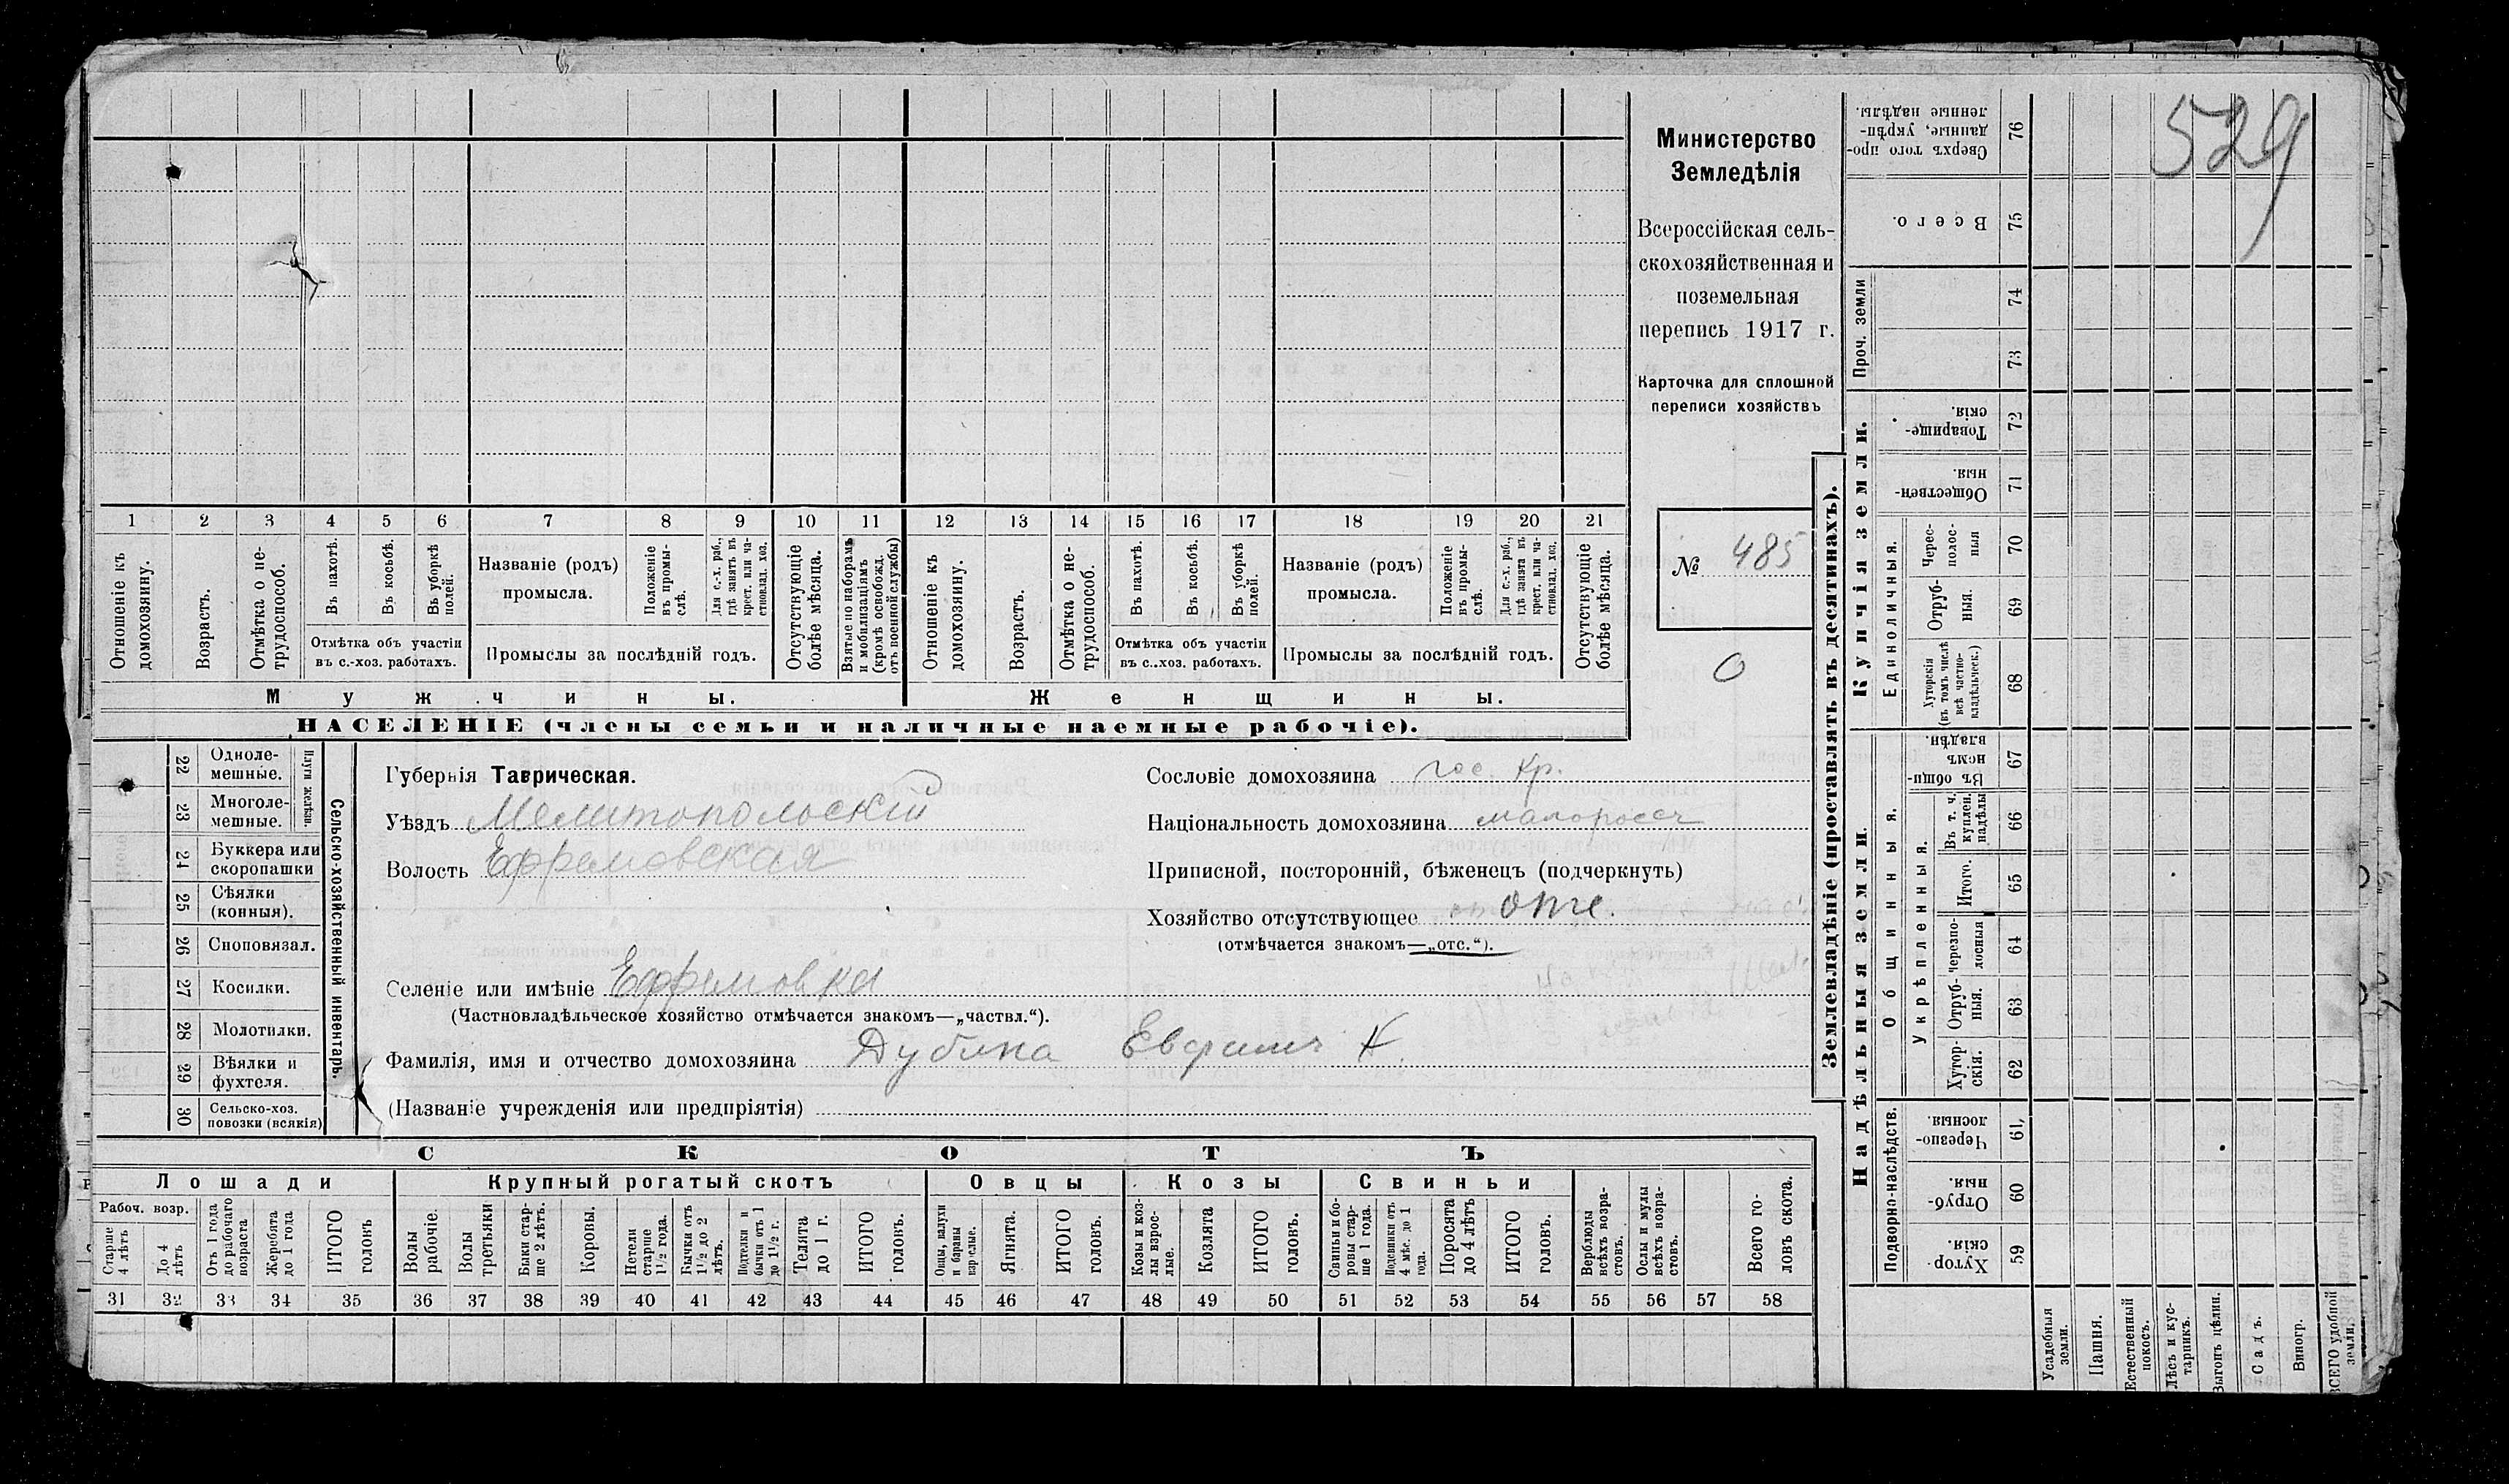 529
Министерство
Земледѣлія
Всероссійская сель-
скохозяйственная и
поземельная
перепись 1917 г.
Карточка для сплошной
переписи хозяйствъ
№ 485
0
1 2 3 4 5 6 7 8 9 10 11 12 13 14 15 16 17 18 19 20 21
Отношеніе къ домохозяину.
Возрастъ.
Отмѣтка о не-
трудоспособ.
Въ пахотѣ.
Въ косьбѣ.
Въ уборкѣ
полей.
Отмѣтка объ участіи
въ с.-хоз. работахъ.
Названіе (родъ)
промысла.
Положеніе
въ промы-
слѣ.
Для с.-х. раб.,
гдѣ занятъ въ
крест. или ча-
стновлад. хоз.
Промыслы за послѣдній годъ.
Отсутствующіе
болѣе мѣсяца.
Взятые по наборамъ
и мобилизаціямъ
(кромѣ освобожд.
отъ военной службы)
Отношеніе къ
домохозяину.
Возрастъ.
Отмѣтка о не-
трудоспособ.
Въ пахотѣ.
Въ косьбѣ.
Въ уборкѣ
полей.
Отмѣтка объ участіи
въ с..хоз. работахъ.
Названіе (родъ)
промысла.
Положеніе
въ промы-
слѣ.
Для с.-х. раб.,
гдѣ занята въ
крест. или ча-
стновлад. хоз.
Промыслы за послѣдній годъ.
Отсутствующіе
болѣе мѣсяца.
Мужчины.
Женщины.
НАСЕЛЕНІЕ (члены семьи и наличные наемные рабочіе).
22 Одноле-
мешные.
23 Многоле-
мешные.
Плуги желѣзн.
24 Буккера или
скоропашки
25 Сѣялки
(конныя).
26 Сноповязал.
27 Косилки.
28 Молотилки.
29 Вѣялки и
фухтеля.
30 Сельско-хоз.
повозки (всякія)
Сельско-хозяйственный инвентарь.
Губернія Таврическая.
Уѣздъ Мелитопольскій
Волость Ефремовская
Сословіе домохозяина гос. кр.
Національность домохозяина малороссъ
Приписной, посторонній, бѣженецъ (подчеркнуть)
Хозяйство отсутствующее отс.
(отмѣчается знакомъ—„отс.“).
Селеніе или имѣніе Ефремовка
(Частновладѣльческое хозяйство отмѣчается знакомъ—„частвл.“).
Фамилія, имя и отчество домохозяина Дубина Евфимъ К.
(Названіе учрежденія или предпріятія)
СКОТЪ
Лошади
Рабоч. возр.
Старше
4 лѣтъ
До 4
лѣтъ
Отъ 1 года
до рабочаго
возраста
Жеребята
до 1 года
ИТОГО
головъ
Крупный рогатый скотъ
Волы
рабочіе.
Волы
третьяки
Быки стар-
ше 2 лѣтъ.
Коровы.
Нетели
старше
1 1/2 года.
Бычки отъ
1 1/2 до 2
лѣтъ.
Подтелки и
бычки отъ 1
до 1 1/2 г.
Телята
до 1 г.
ИТОГО
головъ.
Овцы
Овцы, валухи
и бараны
взрослые.
Ягнята.
ИТОГО
головъ.
Козы
Козы и коз-
лы взрос-
лые.
Козлята
ИТОГО
головъ.
Свиньи
Свиньи и бо-
ровы стар-
ше 1 года.
Подсвинки отъ
4 мѣс. до 1
года.
Поросята
до 4 лѣтъ
ИТОГО
головъ.
Верблюды
всѣхъ возра-
стовъ.
Ослы и мулы
всѣхъ возра-
стовъ.
Всего го-
ловъ скота.
31 32 33 34 35 36 37 38 39 40 41 42 43 44 45 46 47 48 49 50 51 52 53 54 55 56 57 58
Землевладѣніе (проставлять въ десятинахъ).
Сверхъ того про-
данные, укрѣп-
ленные надѣлы. 76
Всего. 75
Проч. земли
74
73
Купчія земли.
Товарище-
скія. 72
Обществен-
ныя 71
Единоличныя.
Черес-
полос-
ныя 70
Отруб-
ныя. 69
Хуторскія
(въ томъ числѣ
всѣ частно-
владѣльческ.) 68
Надѣльныя земли.
Общинныя.
Въ общи-
номъ
владѣн. 67
Укрѣпленныя.
Въ т. ч.
куплен.
надѣлы 66
Итого. 65
Черезпо-
лосныя 64
Отруб-
ныя. 63
Хутор-
скія. 62
Подворно-наслѣдств.
Черезпо-
лосныя 61
Отруб-
ныя. 60
Хутор-
скія. 59
Усадебныя
земли.
Пашня.
Естественный
покосъ.
Лѣсъ и кус-
тарникъ.
Выгонъ цѣлин.
Садъ.
Виногр.
ВСЕГО удобной
земли.